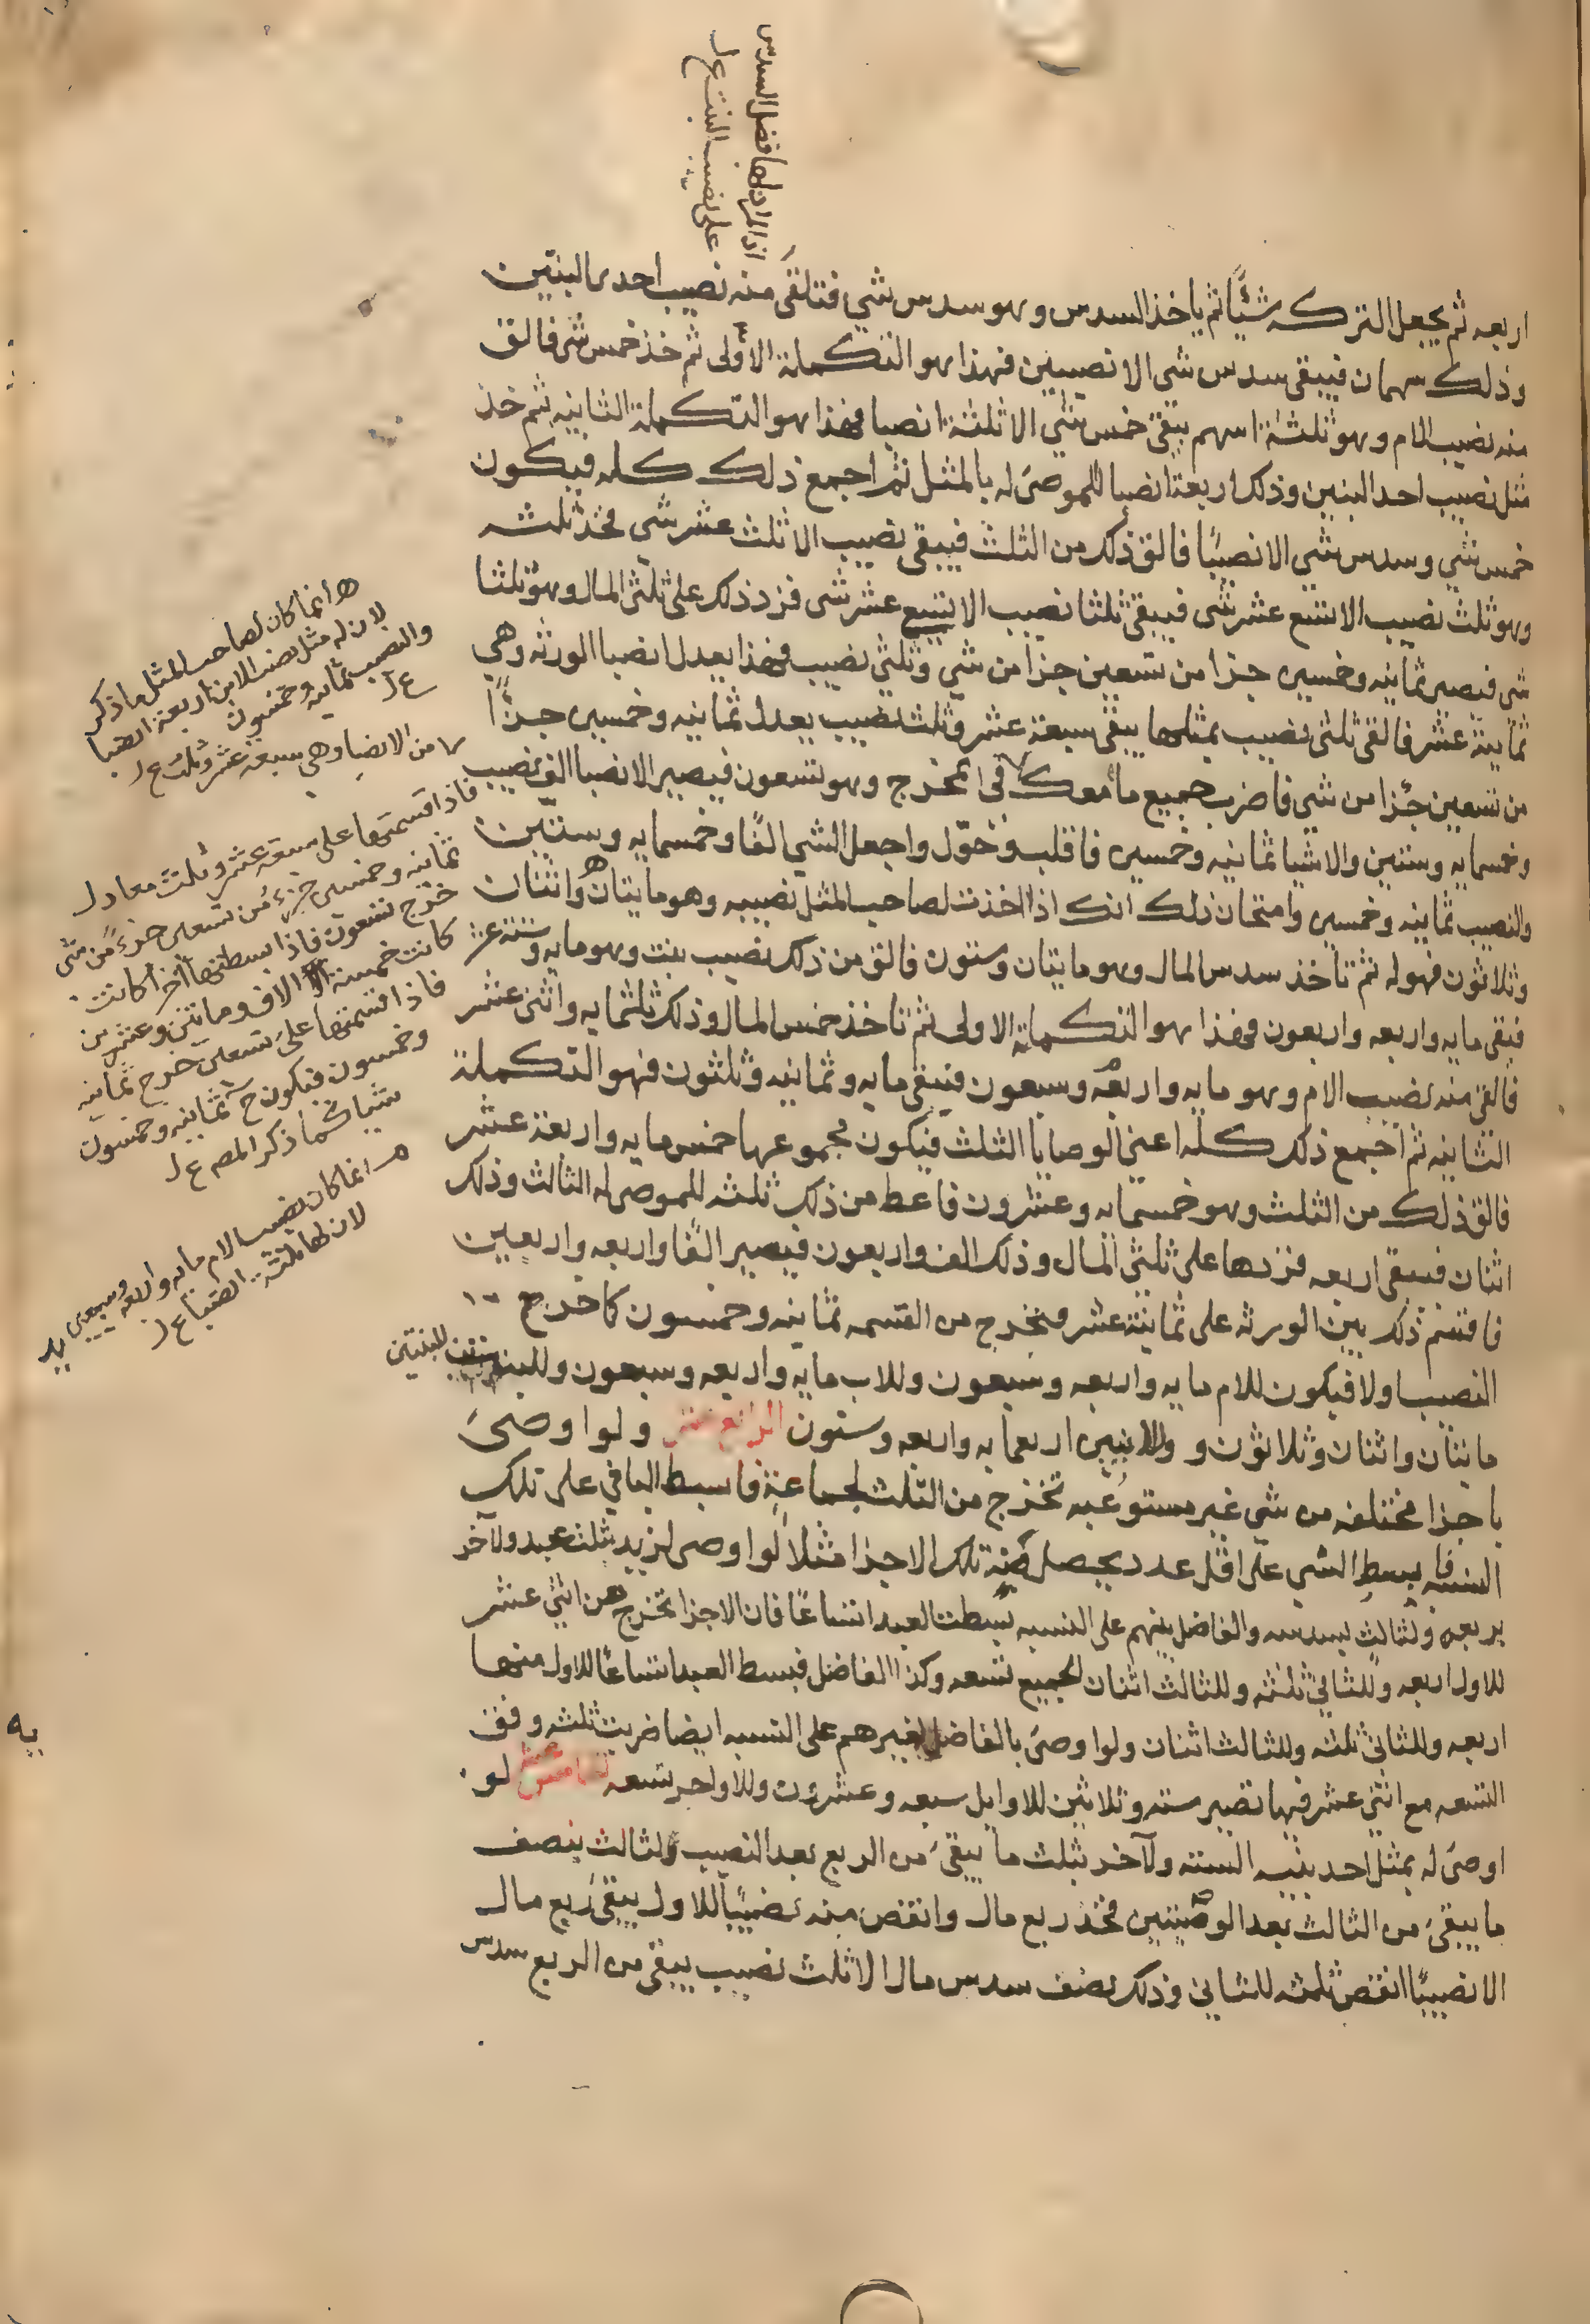 اذ المراد بها فضل السدس
على نصيب البنت ع ل
اربعه ثم يجعل التركه شيًا ثم ياخذ السدس وهو سدس شي فتلقى منه نصيب احدى البنتين
وذلك سهمان فيبقى سدس شي الا نصيبين فهذا هو التكملة الاولى ثم خذ خمس شي فالق
منه نصيب الام وهو ثلثة اسهم يبقى خمس شي الا ثلثة انصبا فهذا هو التكملة الثانيه ثم خذ
مثل نصيب احد البنين وذلك اربعة انصبا للموصى له بالمثل ثم اجمع ذلك كله فيكون
خمس شي وسدس شي الا نصيبًا فالق ذلك من الثلث فيبقى نصيب الا ثلث عشر شي فخذ ثلثه
وهو ثلث نصيب الا تسع عشر شي فيبقى ثلثا نصيب الا تسع عشر شي فزد ذلك على ثلثي المال وهو ثلثا
شي فيصير ثمانيه وخمسين جزا من تسعين جزا من شي وثلثي نصيب فهذا يعدل انصبا الورثه وهي
ثمانية عشر فالقى ثلثى نصيب بمثلها يبقى سبعة عشر وثلث نصيب يعدل ثمانيه وخمسين جزًا
من تسعين جزا من شي فاضرب جميع ما معك في المخرج وهو تسعون فيصير الانصبا الفي نصيب
وخمسمايه وستين والاشيا ثمانيه وخمسين فاقلب وحوّل واجعل الشي الفًا وخمسمايه وستين
والنصيب ثمانيه وخمسين وامتحان ذلك انك اذا اخذت لصاحب المثل نصيبه وهو مايتان واثنتان
وثلاثون فهو له ثم تاخذ سدس المال وهو مايتان وستون فالق من ذلك نصيب بنت وهو مايه وسته عشر
فبقى مايه واربعه واربعون فهذا هو التكملة الاولى ثم تاخذ خمس المال وذلك ثلثمايه واثنى عشر
فالقى منه نصيب الام وهو مايه واربعه وسبعون فيبقى مايه وثمانيه وثلثون فهو التكملة
الثانيه ثم اجمع ذلك كله اعنى الوصايا الثلث فيكون مجموعها خمس مايه واربعة عشر
فالق ذلك من الثلث وهو خمسمايه وعشرون فاعط من ذلك ثلثه للموصى له الثالث وذلك
اثنان فيبقى اربعه فزدها على ثلثى المال وذلك الف واربعون فيصير الفًا واربعه واربعين
فاقسم ذلك بين الورثه على ثمانية عشر فيخرج من القسمه ثمانيه وخمسون كما خرج
النصيب اولا فيكون للام مايه واربعه وسبعون وللاب مايه واربعه وسبعون للبنتين
مايتان واثنتان وثلاثون وللابنين اربعمايه واربعه وستون الرابع عشر ولو اوصى
باجزا مختلفه من شي غير مستوعبه تخرج من الثلث لجماعة فابسط الباقي على تلك
النسبه فابسط الشي على اقل عدد يحصل منه تلك الاجزا مثلا لو اوصى لزيد بثلث عبد ولاخر
بربعه ولثالث بسدسه والفاضل بينهم على النسبه بسطت العبد اتساعًا فان الاجزا تخرج من اثني عشر
للاول اربعه وللثاني ثلثه وللثالث اثنان الجميع تسعه وكذا الفاضل فبسط العبد اتساعًا للاول منها
اربعه وللثاني ثلثه وللثالث اثنان ولو اوصى بالفاضل لغيرهم على النسبه ايضا ضربت ثلثه وفق
التسعه مع اثني عشر فيها تصير سته وثلاثين للاوايل سبعه وعشرون وللاواخر تسعه الخامس عشر لو
اوصى له بمثل احد بنيه السته ولآخر بثلث ما يبقى من الربع بعد النصيب ولثالث بنصف
ما يبقى من الثالث بعد الوصيتين فخذ ربع مال وانقص منه نصيبًا للاول يبقى ربع مال
الا نصيبًا انقص ثلثه للثاني وذلك نصف سدس مال الا ثلث نصيب يبقى من الربع سدس
ه انما كان لصاحب المثل ما ذكر
لان له مثل نصيب الابن اربعة انصبا
والنصيب ثمانيه وخمسون
ع ل
من الانصبا وهي سبعة عشر وثلث ع ل
فاذا قسمتها على سبعه عشر وثلث معادل
ثمانيه وخمسين جزء من تسعين جزءً من شي
خرج تسعون فاذا بسطتها اجزا كانت
كانت خمسة الاف ومايتين وعشرين
فاذا قسمتها على تسعين خرج ثمانيه
وخمسون فيكون ح ثمانيه وخمسون
شيا كما ذكر المص ع ل
م انما كان نصيب الام مايه واربعه وسبعين
لان لها ثلثة انصبا ع ل
يه